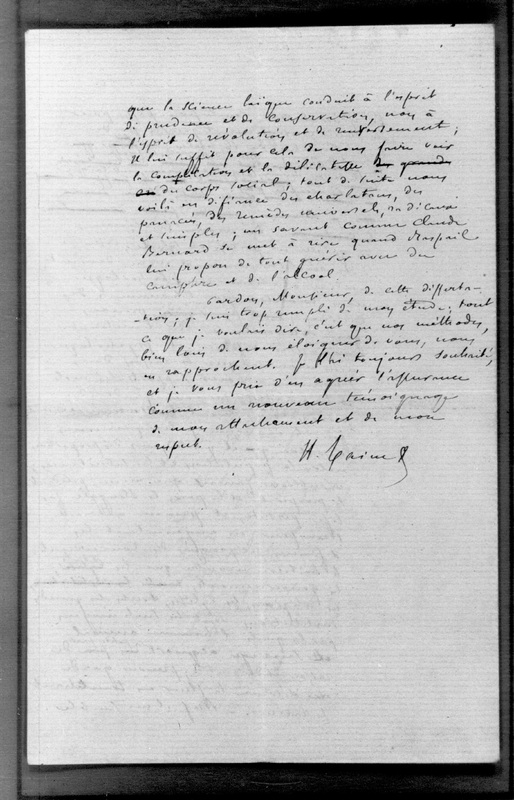 que la science laïque conduit à l'esprit
de prudence et de conservation, non à
l'esprit de révolution et de renversement;
Il lui suffit pour cela de nous faire voir
la complication et la délicatesse
du corps social; tout de suite nous
voilà en défiance des charlatans, des
panacées, des remèdes universels,
et simples; un savant comme Claude
Bernard se met à rire quand Raspail
lui propose de tout guérir avec du
camphre et de l'alcool.
Pardon, Monsieur, de cette disserta-
-tion; je suis trop rempli de mon étude; tout
ce que je voulais dire, c'est que nos méthodes,
bien loin de nous éloigner de vous, nous
en rapprochent. Je l'ai toujours souhaité,
et je vous prie d'en agréer l'assurance
comme un nouveau témoignage
de mon attachement et de mon
respect.
H. Taine